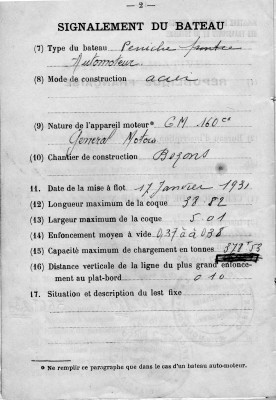 — 2 —
SIGNALEMENT DU BATEAU
(7) Type du bateau Péniche pontée
Automoteur.
(8) Mode de construction acier
(9) Nature de l'appareil moteur* G.M. 160 cv
General Motors
(10) Chantier de construction Bezons
11. Date de la mise à flot 17 Janvier 1931
(12) Longueur maximum de la coque 38.82
(13) Largeur maximum de la coque 5.01
(14) Enfoncement moyen à vide 0,37 à 0,38
(15) Capacité maximum de chargement en tonnes
(16) Distance verticale de la ligne du plus grand enfonce-
ment au plat-bord 0 10
17. Situation et description du lest fixe
* Ne remplir ce paragraphe que dans le cas d'un bateau auto-moteur.